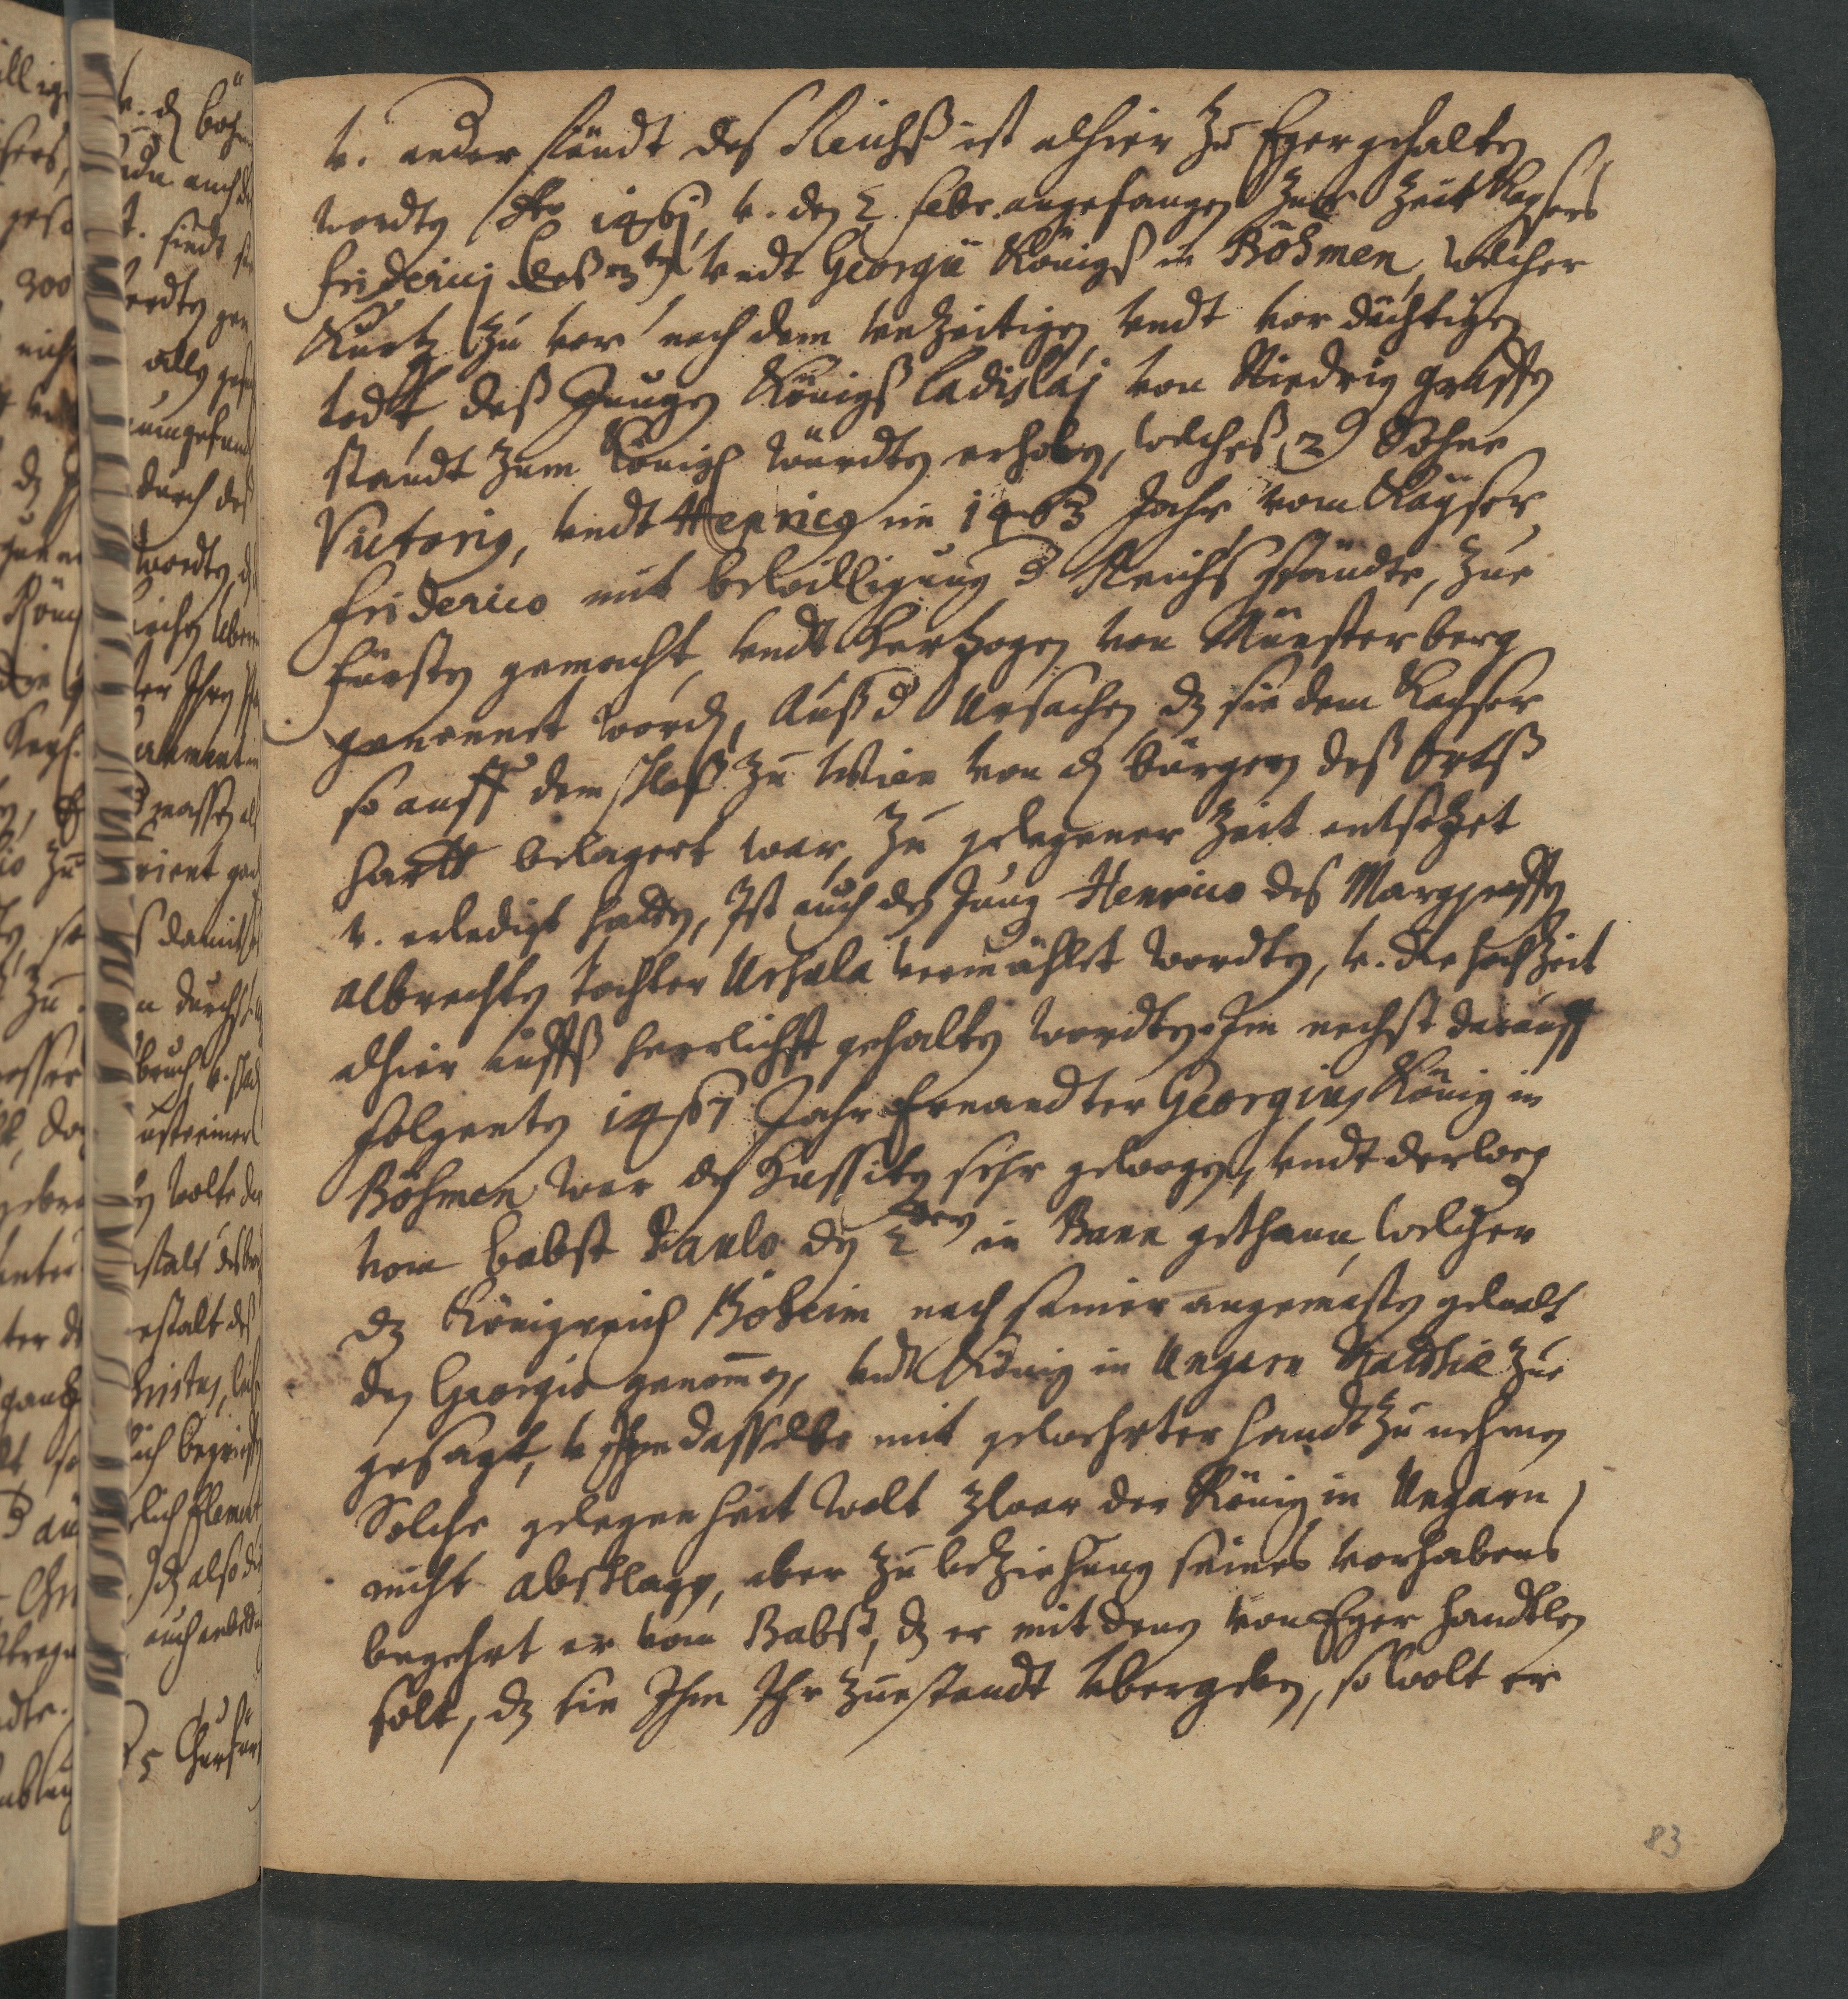 v. ander ständt des Reichß ist alhier zu Eger gehalten
wordten A° 1461, v. den 2 febr. angefangen Zur Zeit Kaysers
Friderici deß 3ten vndt Georgii Königß in Böhmen, welcher
Kurtz zu vor nach dem vnzeitigen vndt vordächtigen
todt deß Jungen Königß Ladislaj von Niedrig graffen
standt zum Königl würdten erhoben, welcheß 2 Söhne
Victorin, vndt Henricq im 1463 Jahr vom Kayser
Friderico mit bewilligung d Reichs ständte, zue
fürsten gemacht, vndt Hertzogen von Münsterberg
genennet worden, Auß d Ursachen dz sie dem Kayser
so auff dem schloß zu Wien von den bürgern deß Ortß
hartt belagert war, zu gelegener Zeit entsetzet
v. erledigt hatten, Ist auch der Jung Henrico des Marggraffen
Albrechten tochter Ursula vermählet wordten, v. die hochzeit
alhier auffß herrlichst gehalten wordten. Im nechst darauff
folgenten 1467 Jahr Ernandter Georgius König in
Böhmen war den Hussiten sehr gewogen, vndt derweg
vom babst Paulo den 2ten in Bann gethann, welcher
dz Königreich Böheim nach seiner angemasten gewalt
den Georgio genom̄en, vndt König in Ungarn Matthiæ zue
gesagt, v Ihm dasselbe mit gewehrter handt zu nehmen
Solche gelegenheit wolt zwar der König in Ungarn
nicht abschlagen, aber zu beziehung seines vorhabens
begehrt er vom Babst, dz er mit denen von Eger handtlen
solt, dz sie Ihm Ihr zuestandt vbergeben, so wolt er
83